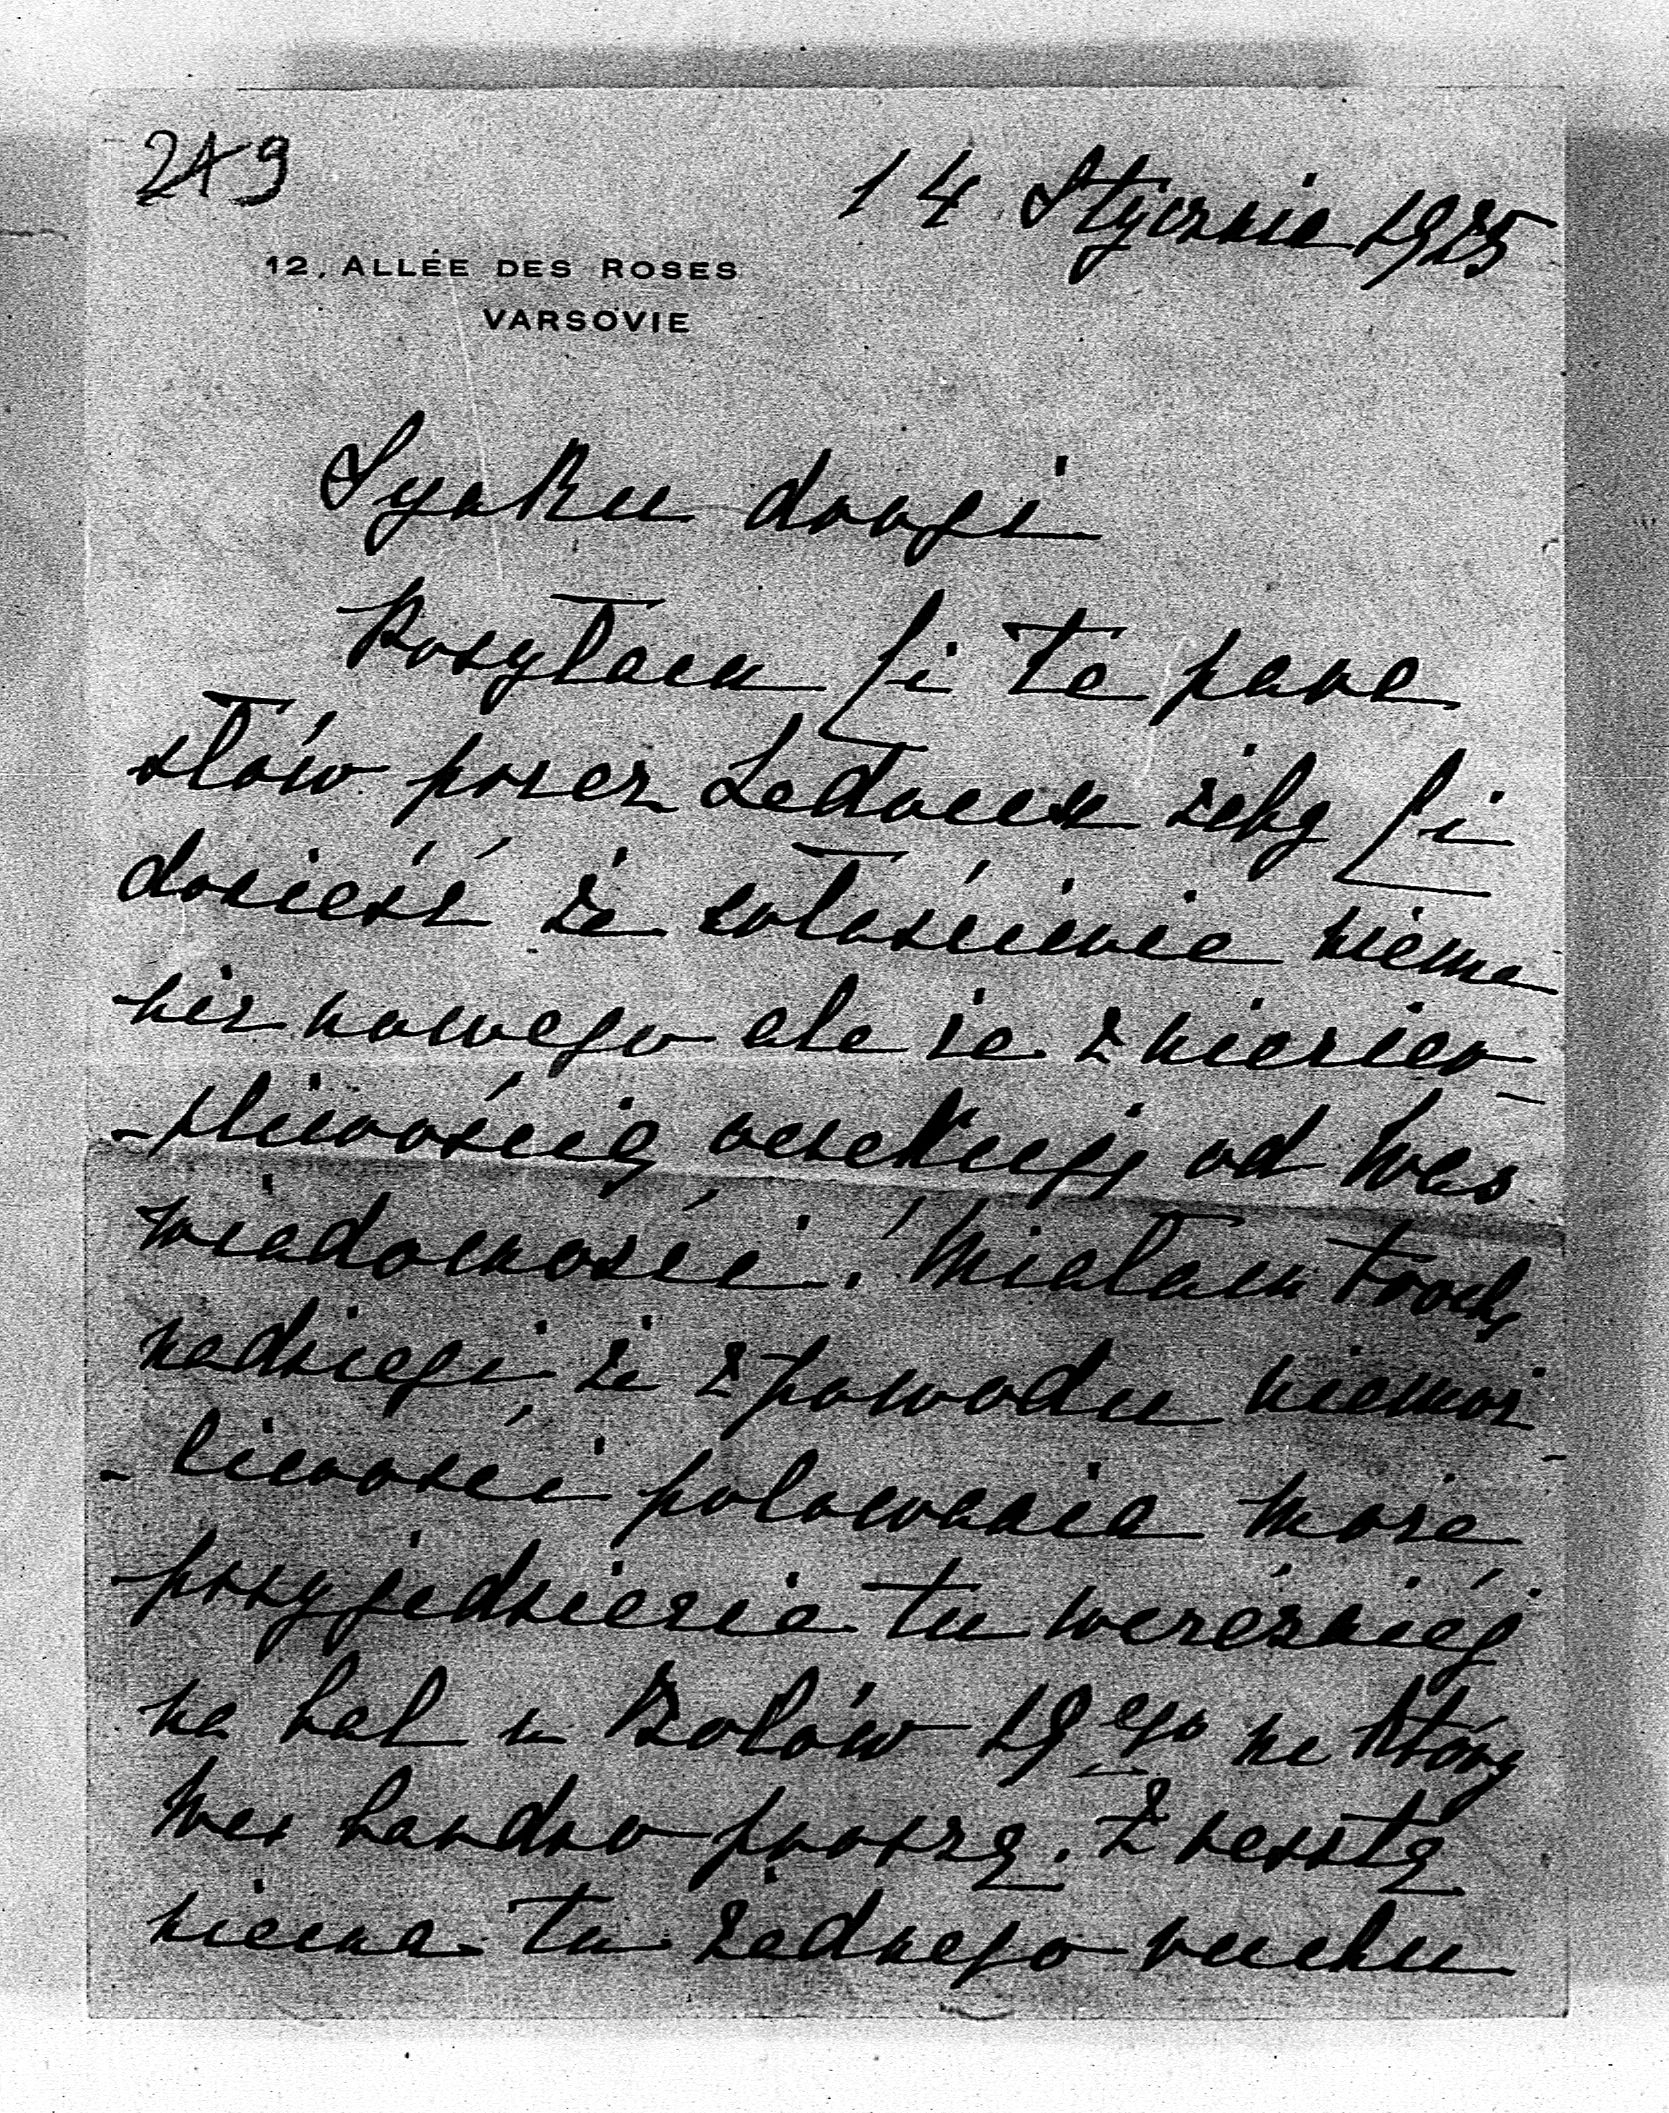 249
14 Stycznia 1925
12, ALLÉE DES ROSES
VARSOVIE
Synku drogi
Posyłam Ci te parę
słów przez żeby Ci
donieść że właściwie niema
nic nowego ale że z niecier-
-pliwością oczekuję od Was
wiadomości. Miałam trochę
nadzieji że z powodu niemoż-
-liwości polowania może
przyjedziecie tu wcześniéj
na bal u 19ego na który
Was bardzo proszę. Zresztą
niema tu żadnego ruchu